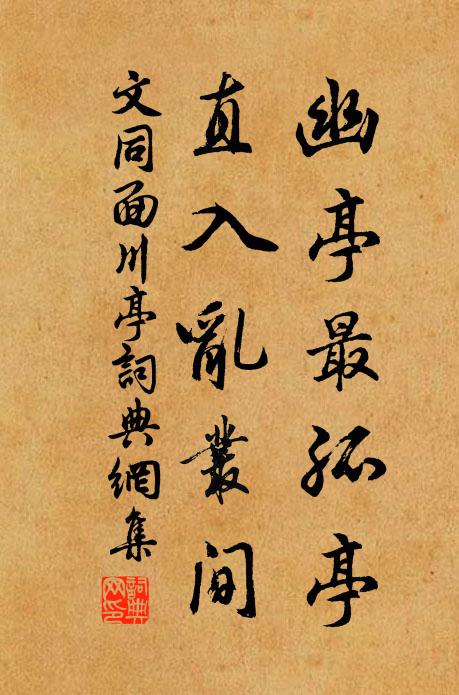 幽亭最孤亭
直入亂叢間
文同面川亭詞典網集
詞典網印